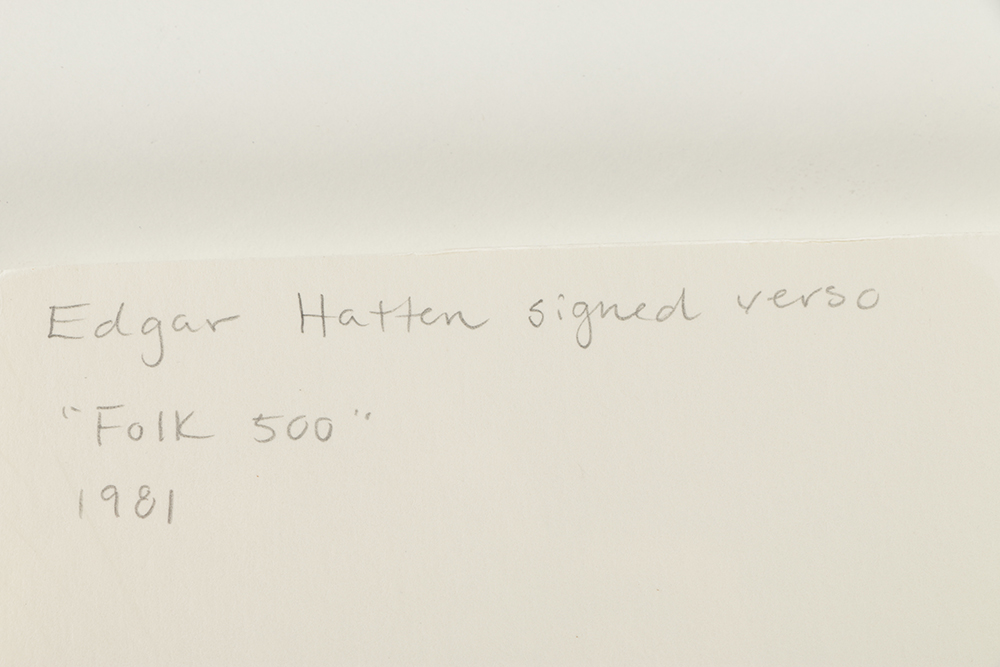 Edgar Hatten signed verso
"Folk 500"
1981